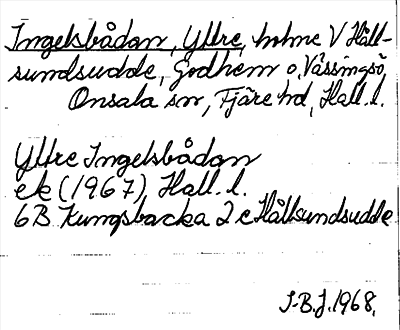 Ingelsbådan, Yttre, holme V Håll-
sundsudde, Godhem o. Vässingsö,
Onsala sn, Fjäre hd, Hall. l.
Yttre Ingelsbådan
ek (1967) Hall. l.
6B Kungsbacka 2 c Hållsundsudde
I-B.J. 1968.